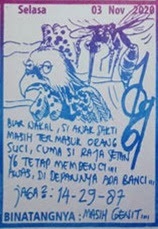 Selasa 03 Nov 2020
BIAR NAKAL, SI ANAK SAKTI
MASIH TERMASUK ORANG
SUCI, CUMA SI RAJA SETAN
YG TETAP MEMBENCI!!!
AWAS, DI DEPANNYA ADA BANCI!!!
JAGA2: 14-29-87
BINATANGNYA: MASIH GENIT!!!